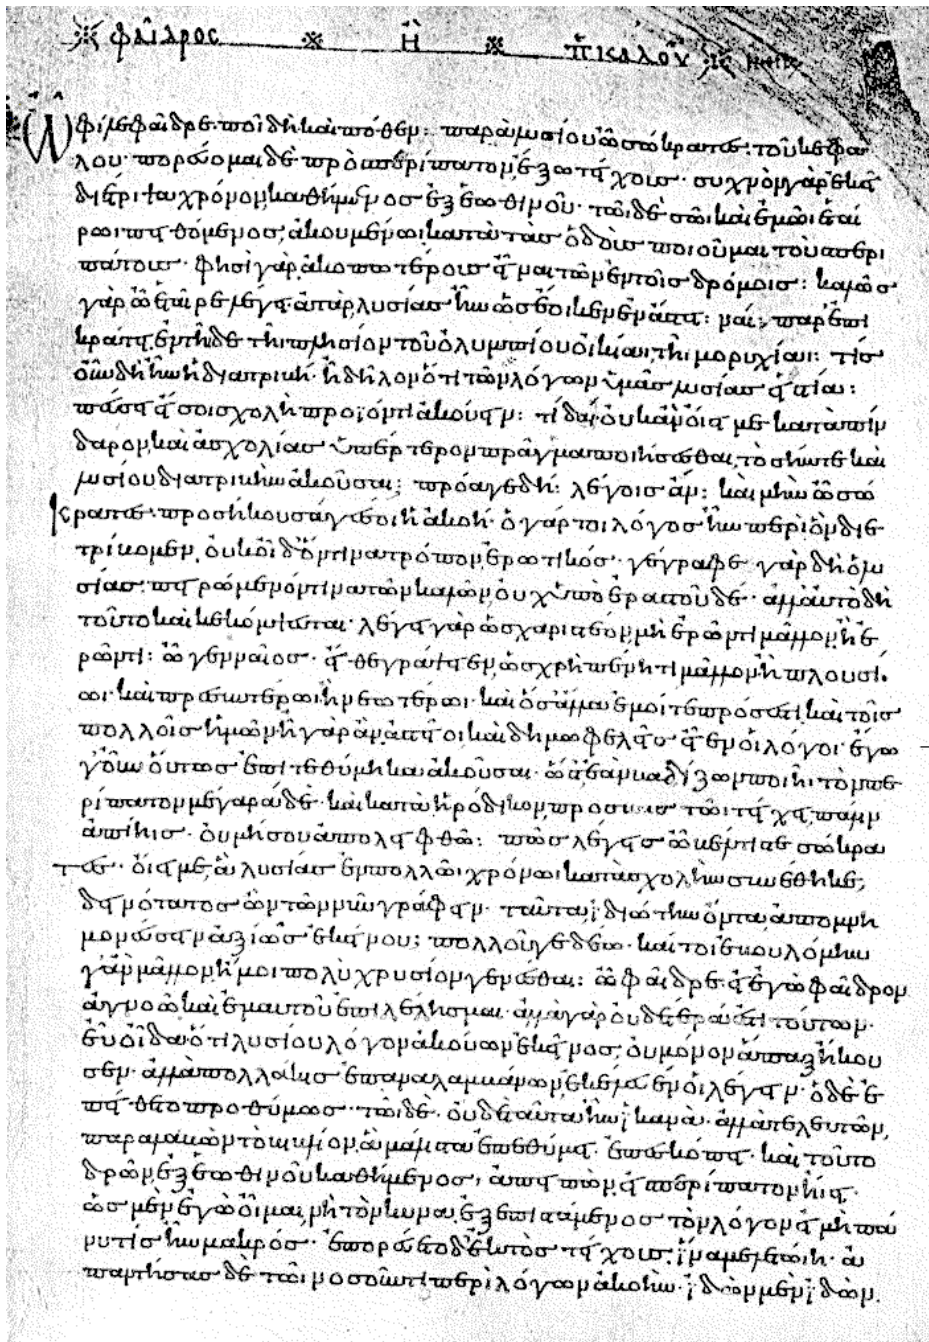 φαῖδρος ἢ π καλοῦ
Ὦ φίλε φαῖδρε· ποῖ δὴ καὶ πόθεν: παρὰ λυσίου ὦ σώκρατες· τοῦ κεφά
λου· πορεύομαι δὲ πρὸς περίπατον ἔξω τείχους· συχνὸν γὰρ ἐκεῖ
διέτριψα χρόνον, καθήμενος ἐξ ἑωθινοῦ· τῶι δὲ σῶι καὶ ἐμῶι ἑταί
ρωι πειθόμενος, ἀκουμένωι κατὰ τὰς ὁδοὺς ποιοῦμαι τοὺς περι
πάτους· φησὶ γὰρ ἀκοπωτέρους εἶναι τῶν ἐν τοῖς δρόμοις: καλῶς
γὰρ ὦ ἑταῖρε λέγει· ἀτὰρ λυσίας ἦν ὡς ἔοικεν ἐν ἄστει: ναί· παρ' ἐπι
κράτει, ἐν τῆιδε τῆι πλησίον τοῦ ὀλυμπίου οἰκίαι τῆι μορυχίαι: τίς
οὖν δὴ ἦν ἡ διατριβή· ἢ δῆλον ὅτι τῶν λόγων ὑμᾶς λυσίας εἱστία:
πεύσει εἴ σοι σχολὴ προϊόντι ἀκούειν: τί δαί· οὐκ ἂν οἴει με κατὰ πίν
δαρον, καὶ ἀσχολίας ὑπέρτερον πρᾶγμα ποιήσεσθαι, τὸ σήν τε καὶ
λυσίου διατριβὴν ἀκοῦσαι: πρόαγε δή: λέγοις ἄν: καὶ μὴν ὦ σώ
κρατες· προσήκουσά γέ σοι ἡ ἀκοή· ὁ γάρ τοι λόγος ἦν περὶ ὃν διε
τρίβομεν, οὐκ οἶδ' ὅντινα τρόπον ἐρωτικός· γέγραφε γὰρ δὴ ὁ λυ
σίας· πειρώμενόν τινα τῶν καλῶν, οὐχ ὑπὸ ἐραστοῦ δέ· ἀλλ' αὐτὸ δὴ
τοῦτο καὶ κεκόμψευται· λέγει γὰρ ὡς χαριστέον, μὴ ἐρῶντι μᾶλλον, ἢ ἐ
ρῶντι: ὦ γενναῖος· εἴθε γράψειεν, ὡς χρὴ πένητι μᾶλλον ἢ πλουσί
ωι· καὶ πρεσβυτέρωι ἢ νεωτέρωι· καὶ ὅσα ἄλλα ἐμοί τε πρόσεστι, καὶ τοῖς
πολλοῖς ἡμῶν· ἦ γὰρ ἂν ἀστεῖοι καὶ δημωφελεῖς εἶεν οἱ λόγοι· ἔγω
γ' οὖν οὕτως ἐπιτεθύμηκα ἀκοῦσαι· ὥστ' ἐὰν βαδίζων ποιῆι τὸν πε
ρίπατον μέγαράδε· καὶ κατὰ ἡρόδικον, προσβὰς τῶι τείχει, πάλιν
ἀπίηις· οὐ μή σου ἀπολειφθῶ: πῶς λέγεις ὦ βέλτιστε σώκρα
τες· οἴει με, ἃ λυσίας ἐν πολλῶι χρόνωι κατὰ σχολὴν συνέθηκε,
δεινότατος ὢν τῶν νῦν γράφειν· ταῦτα ἰδιώτην ὄντα, ἀπομνη
μονεύσειν ἀξίως ἐκείνου; πολλοῦ γε δέω· καί τοι ἐβουλόμην
γ' ἂν μᾶλλον ἤ μοι πολὺ χρυσίον γενέσθαι: ὦ φαῖδρε· εἰ ἐγὼ φαῖδρον
ἀγνοῶ καὶ ἐμαυτοῦ ἐπιλέλησμαι· ἀλλὰ γὰρ οὐδέτερά ἐστι τούτων·
εὖ οἶδα ὅτι λυσίου λόγον ἀκούων ἐκεῖνος, οὐ μόνον ἅπαξ ἤκου
σεν· ἀλλὰ πολλάκις ἐπαναλαμβάνων ἐκέλευέν οἱ λέγειν· ὁ δὲ ἐ
πείθετο προθύμως· τῶι δὲ οὐδὲ ταῦτα ἦν ἱκανά· ἀλλὰ τελευτῶν,
παραλαβὼν τὸ βιβλίον, ἃ μάλιστα ἐπεθύμει ἐπεσκόπει· καὶ τοῦτο
δρῶν, ἐξ ἑωθινοῦ καθήμενος, ἀπειπὼν, εἰς περίπατον ἤιει·
ὡς μὲν ἐγὼ οἶμαι, νὴ τὸν κύνα, ἐξεπιστάμενος τὸν λόγον, εἰ μὴ πάν
υ τις ἦν μακρός· ἐπορεύετο δ' ἐκτὸς τείχους, ἵνα μελετώιη· ἀ
παντήσας δὲ τῶι νοσοῦντι περὶ λόγων ἀκοήν· ἰδὼν μὲν, ἰδὼν,